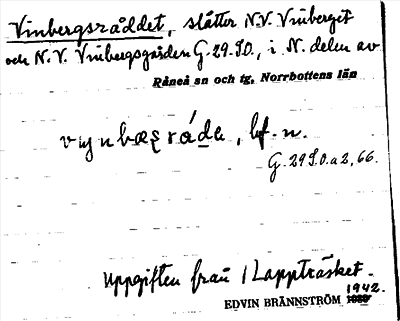 Vinbergsråddet, slåtter N.V. Vinberget
och N.V. Vinbergsgården G.29.S.O., i N. delen av
Råneå sn och tg, Norrbottens län
vynbæṣråde, bf. n.
G. 29 S.O. a 2, 66.
Uppgiften från 1 Lappträsket.
1942.
EDVIN BRÄNNSTRÖM 1939